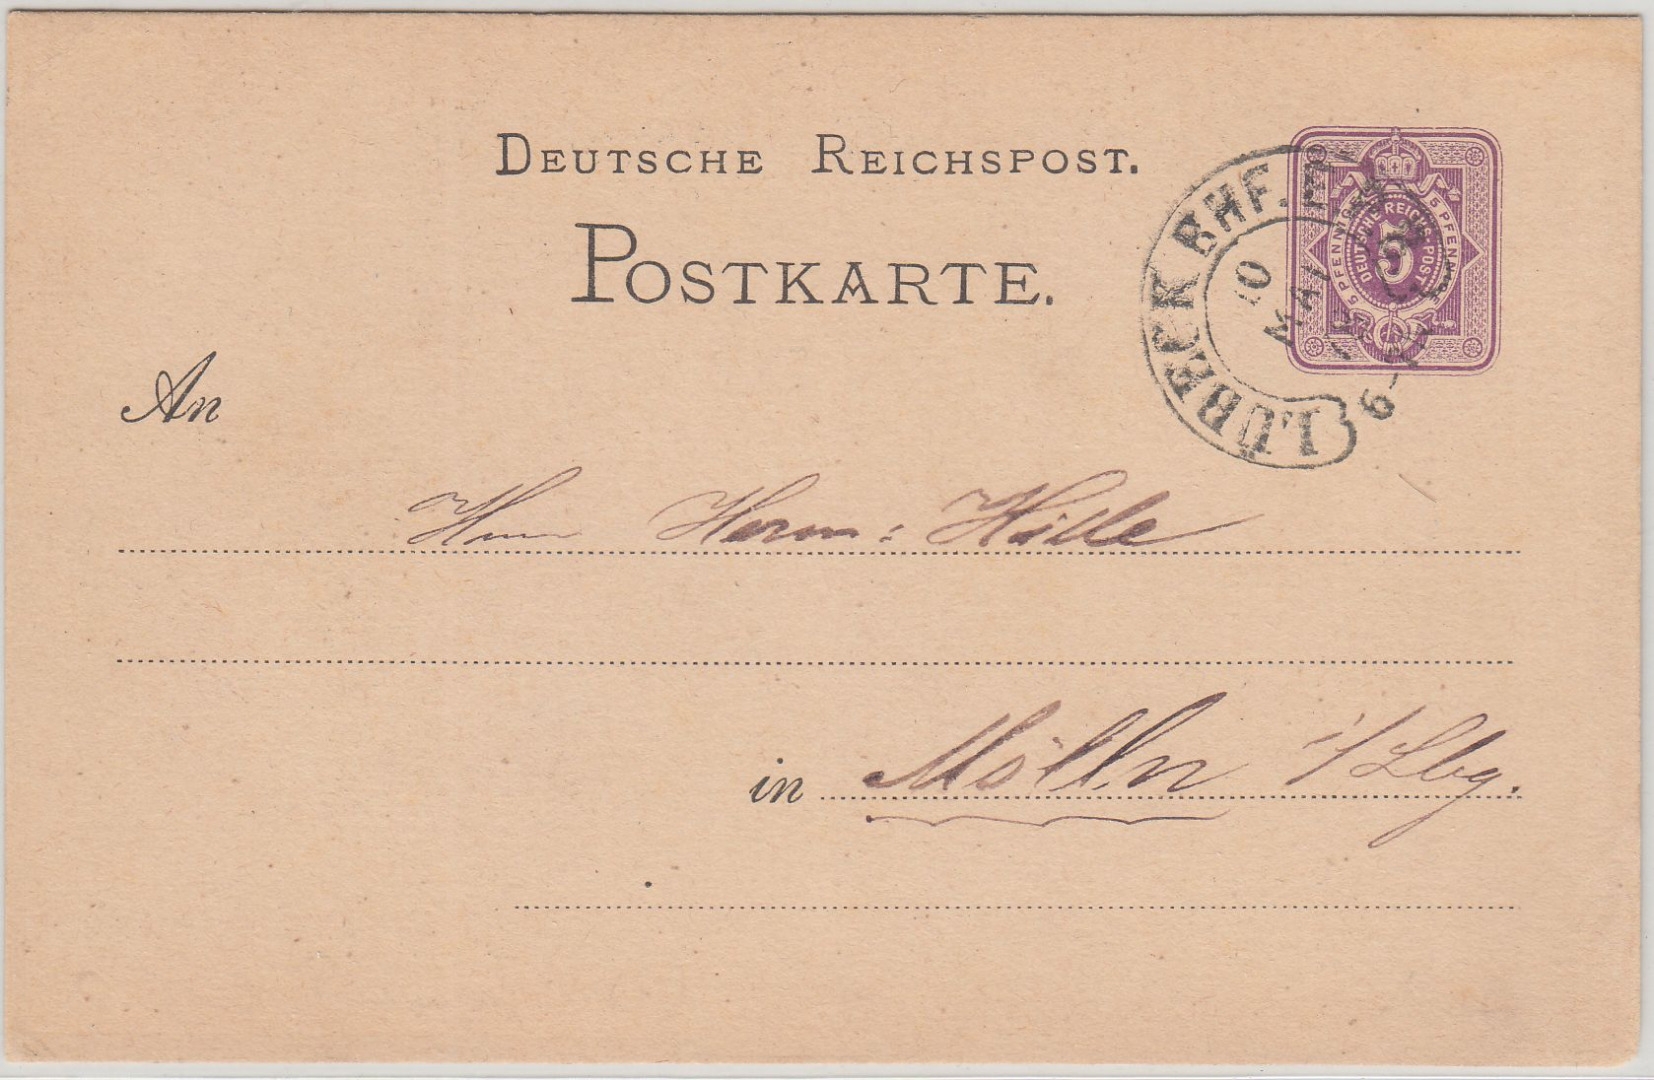 DEUTSCHE REICHSPOST.
POSTKARTE.
5 PFENNIG 5 PFENNIGE
DEUTSCHE REICHS-POST
5
LÜBECK BHF.
10
MAI
6-
An
Herrn Herm: Hölle
in Mölln i/Lbg.